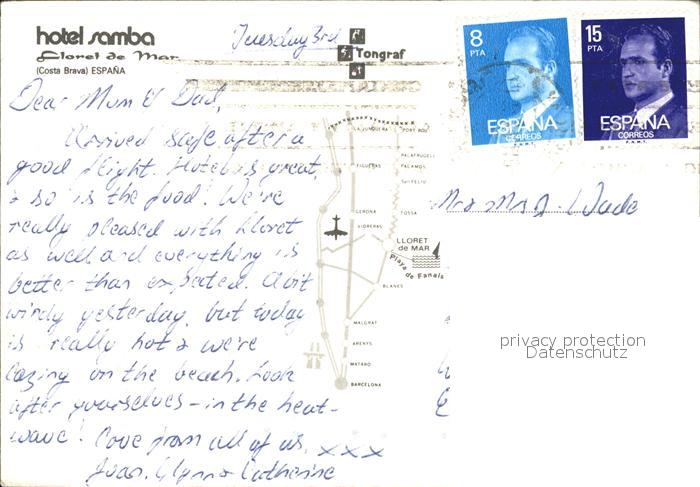 hotel samba
Lloret de Mar
(Costa Brava) ESPAÑA
Tuesday 3rd
Tongraf
8
PTA
ESPAÑA
CORREOS
15
PTA
ESPAÑA
CORREOS
Dear Mum & Dad,
Arrived safe after a
good flight. Hotel is great,
& so is the food! We're
really pleased with Lloret
as well and everything is
better than expected. A bit
windy yesterday, but today
is really hot & we're
lazing on the beach. Look
after yourselves - in the heat-
wave! Love from all of us, xxx
Joan, Glynn & Catherine
LA JUNQUERA
PORT BOU
PALAFRUGELL
FIGUERAS
PALAMOS
SAN FELIO
GERONA
TOSSA
VIDRERAS
LLORET
de MAR
Playa de Fanals
BLANES
MALGRAT
ARENYS
MATARO
BARCELONA
Mr & Mrs D. Wade
privacy protection
Datenschutz